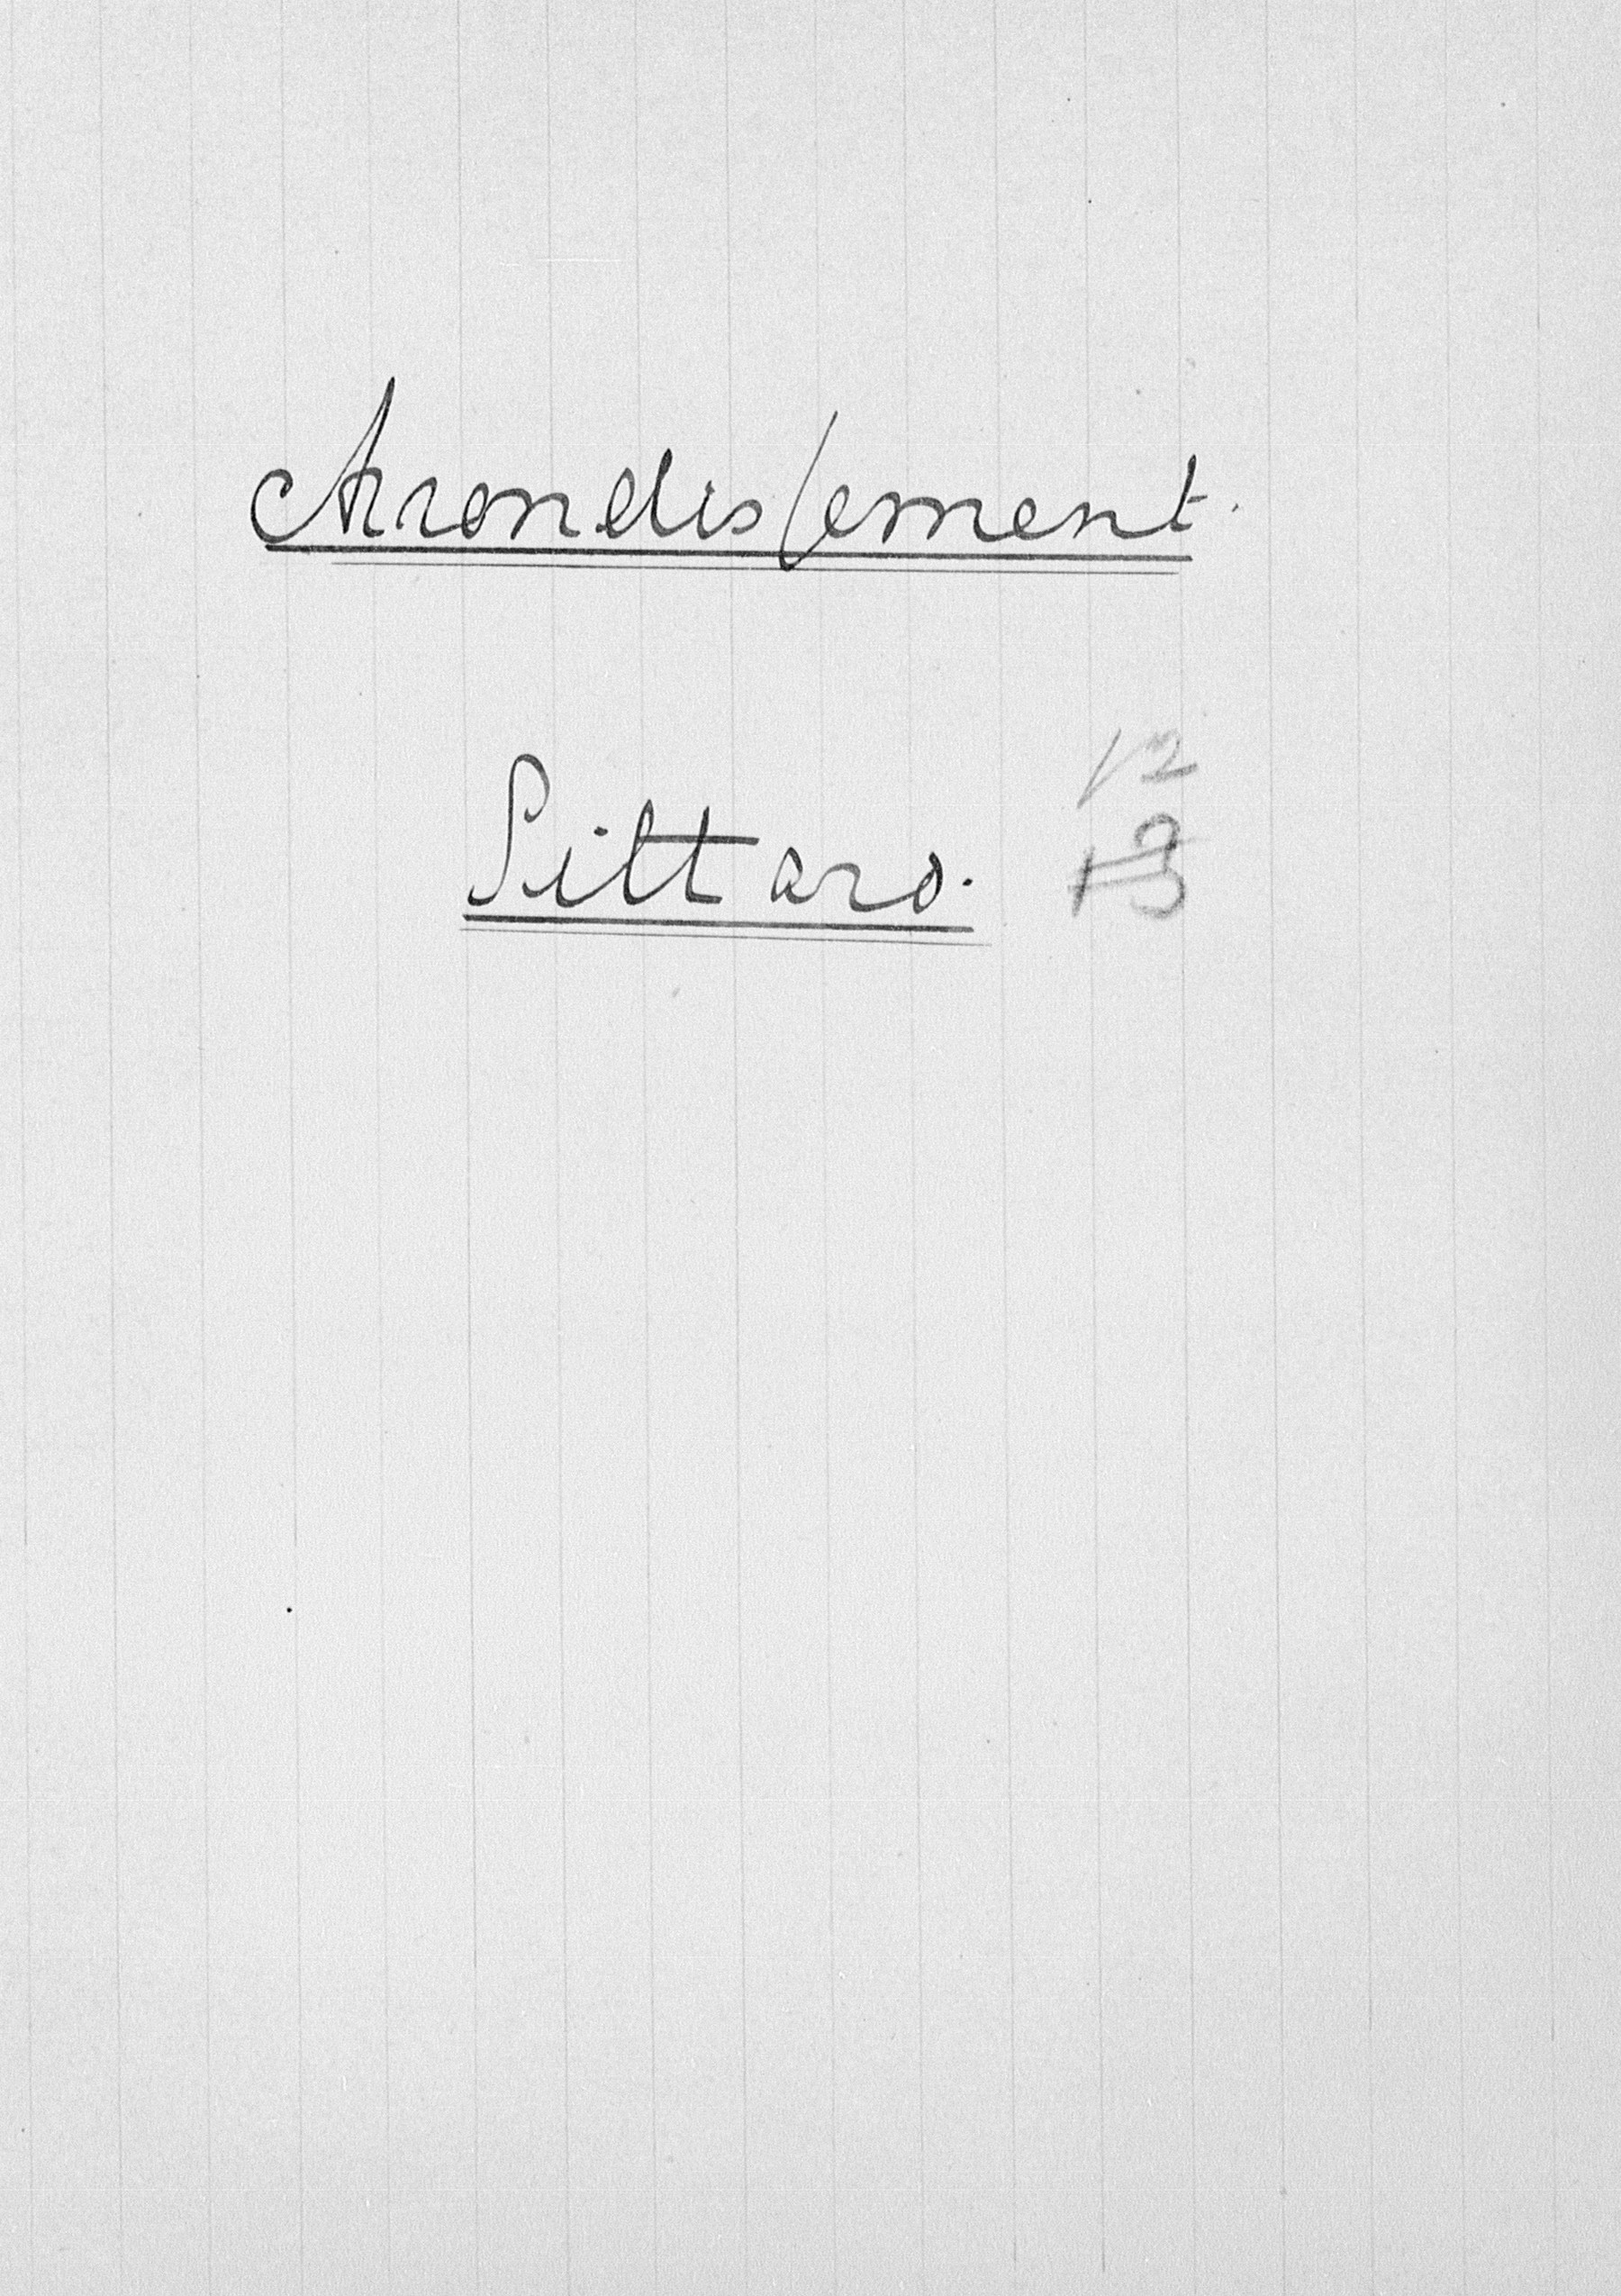 Arrondissement.
12
Sittard.
13